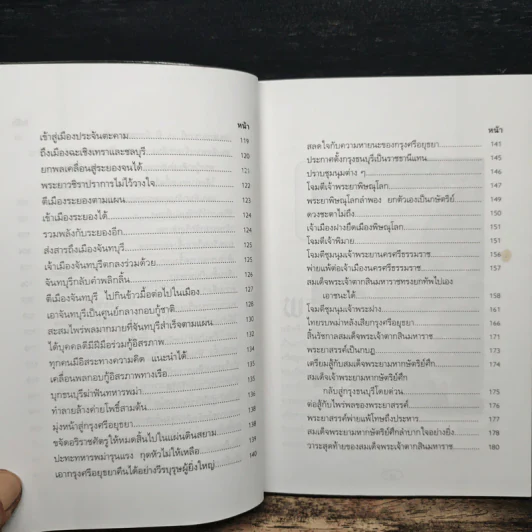 หน้า
เข้าสู่เมืองประจันตะคาม 119
ถึงเมืองฉะเชิงเทราและชลบุรี 120
ยกพลเคลื่อนสู่ระยองจนได้ 121
พระยาวชิราปราการไม่ไว้วางใจ
ตีเมืองระยองตามแผน
เข้าเมืองระยองได้
รวมพลังกับระยองอีก
ส่งสารถึงเมืองจันทบุรี
เจ้าเมืองจันทบุรีตกลงร่วมด้วย
จันทบุรีกลับคำพลิกลิ้น
ตีเมืองจันทบุรี ไปกินข้าวมื้อต่อไปในเมือง
เอาจันทบุรีเป็นศูนย์กลางกอบกู้ชาติ
สะสมไพร่พลมากมายที่จันทบุรีสำเร็จตามแผน
ได้บุคคลดีมีฝีมือร่วมกู้อิสรภาพ
ทุกคนมีอิสระทางความคิด แนะนำได้
เคลื่อนพลกอบกู้อิสรภาพทางเรือ
บุกธนบุรีฆ่าฟันทหารพม่า
ทำลายล้างค่ายโพธิ์สามต้น
มุ่งหน้าสู่กรุงศรีอยุธยา
ขจัดอริราชศัตรูให้หมดสิ้นไปในแผ่นดินสยาม
ปะทะทหารพม่ารุนแรง กุดหัวไม่ให้เหลือ
เอากรุงศรีอยุธยาคืนได้อย่างวีรบุรุษผู้ยิ่งใหญ่ 140
หน้า
สลดใจกับความหายนะของกรุงศรีอยุธยา 141
ประกาศตั้งกรุงธนบุรีเป็นราชธานีแทน 145
ปราบชุมนุมต่าง ๆ 145
โจมตีเจ้าพระยาพิษณุโลก 147
พระยาพิษณุโลกลำพอง ยกตัวเองเป็นกษัตริย์ 149
ดวงชะตาไม่ถึง 150
เจ้าเมืองฝางยึดเมืองพิษณุโลก 151
โจมตีเจ้าพิมาย 151
โจมตีชุมนุมเจ้าพระยานครศรีธรรมราช 156
พ่ายแพ้ต่อเจ้าเมืองนครศรีธรรมราช 157
สมเด็จพระเจ้าตากสินมหาราชทรงยกทัพไปเอง
เอาชนะได้ 158
โจมตีชุมนุมเจ้าพระฝาง 161
ไทยรบพม่าหลังเสียกรุงศรีอยุธยา 163
สิ้นรัชกาลสมเด็จพระเจ้าตากสินมหาราช
พระยาสรรค์เป็นกบฏ
เตรียมสู้กับสมเด็จพระยามหากษัตริย์ศึก 174
สมเด็จเจ้าพระยามหากษัตริย์ศึก
กลับสู่กรุงธนบุรีโดยด่วน 175
ต่อสู้กับไพร่พลของพระยาสรรค์ 176
พระยาสรรค์พ่ายแพ้โทษถึงประหาร 177
สมเด็จพระยามหากษัตริย์ศึกลำบากใจอย่างยิ่ง 178
วาระสุดท้ายของสมเด็จพระเจ้าตากสินมหาราช 180